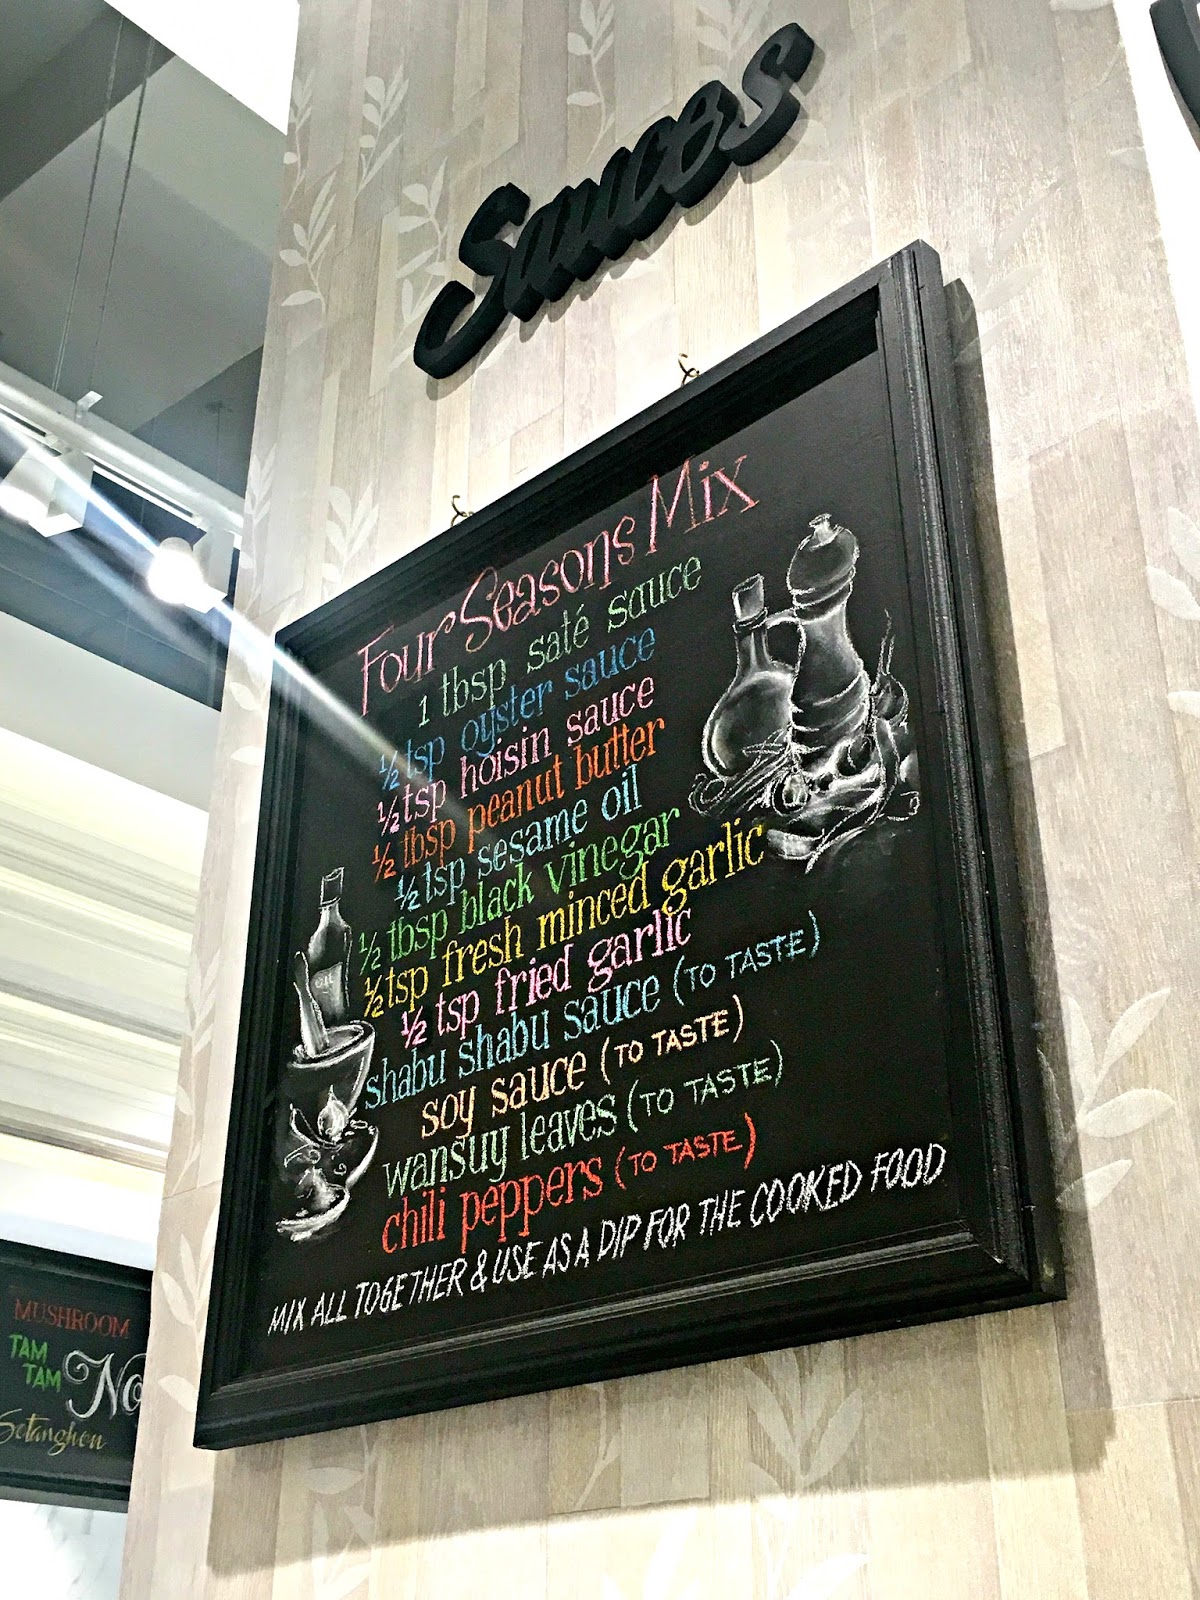 Sauces
Four Seasons Mix
1 tbsp saté sauce
½ tsp oyster sauce
½ tsp hoisin sauce
½ tbsp peanut butter
½ tsp sesame oil
½ tbsp black vinegar
½ tsp fresh minced garlic
½ tsp fried garlic
shabu shabu sauce (TO TASTE)
soy sauce (TO TASTE)
wansuy leaves (TO TASTE)
chili peppers (TO TASTE)
MIX ALL TOGETHER & USE AS A DIP FOR THE COOKED FOOD
OIL
MUSHROOM
TAM
TAM
Sotanghon